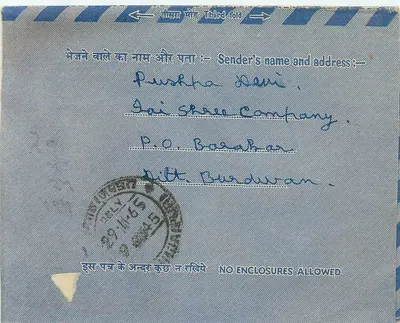 तीसरा मोड़ Third fold
भेजने वाले का नाम और पता :- Sender's name and address:-
Pushpa Devi.
Jai Shree Company.
P.O. Barakar
Ditt. Burdwan.
DELY
इस पत्र के अन्दर कुछ न रखिये NO ENCLOSURES ALLOWED